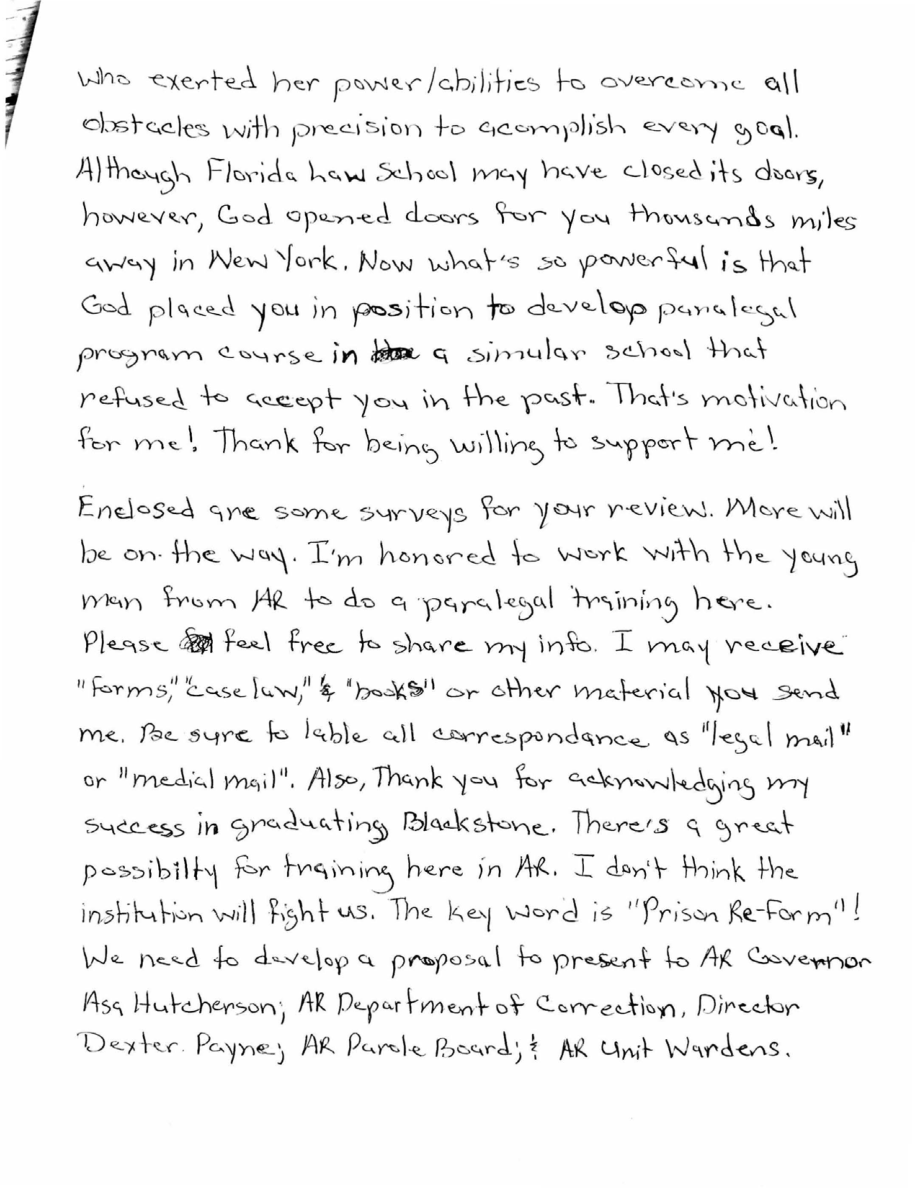 who exerted her power/abilities to overcome all
obstacles with precision to acomplish every goal.
Although Florida Law School may have closed its doors,
however, God opened doors for you thousands miles
away in New York. Now what's so powerful is that
God placed you in position to develop paralegal
program course in a simular school that
refused to accept you in the past. That's motivation
for me! Thank for being willing to support me!
Enclosed are some surveys for your review. More will
be on the way. I'm honored to work with the young
man from AR to do a paralegal training here.
Please feel free to share my info. I may receive
"forms," "case law," & "books" or other material you send
me. Be sure to lable all correspondance as "legal mail"
or "medial mail". Also, Thank you for acknowledging my
success in graduating Blackstone. There's a great
possibilty for training here in AR. I don't think the
institution will fight us. The key word is "Prison Re-Form"!
We need to develop a proposal to present to AR Governor
Asa Hutcherson; AR Department of Correction, Director
Dexter Payne; AR Parole Board; & AR Unit Wardens.